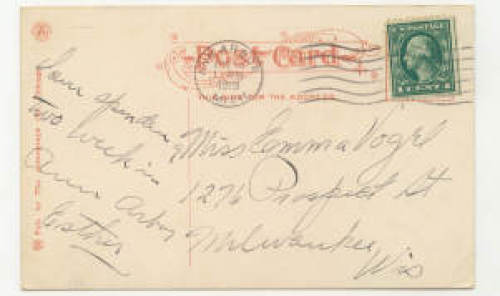 Post Card
THIS SIDE FOR THE ADDRESS
U.S. POSTAGE
1 CENT 1
I am spending
two weeks in
Ann Arbor
Esther
Miss Emma Vogel
1276 Prospect St
Milwaukee,
Wis